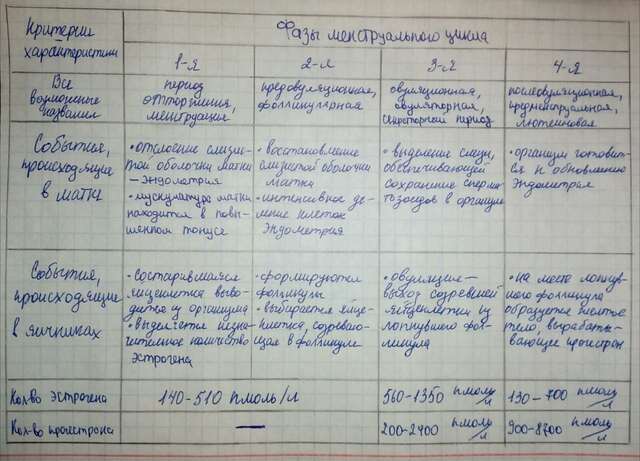 Критерии характеристики
Фазы менструального цикла
1-я
2-я
3-я
4-я
Все
возможные
названия
период
отторжения,
менструация
предовуляционная,
фолликулярная
овуляционная,
овуляторная,
секреторный период
послеовуляционная,
предменструальная,
лютеиновая
События,
происходящие
в матке
• отслоение слизис-
той оболочки матки
— эндометрия
• мускулатура матки
находится в повы-
шенном тонусе
• восстановление
слизистой оболочки
матки
• интенсивное де-
ление клеток
эндометрия
• выделение слизи,
обеспечивающей
сохранение сперма-
тозоидов в организме
• организм готовит-
ся к обновлению
эндометрия
События,
происходящие
в яичниках
• состарившаяся
яйцеклетка выво-
дится из организма
• выделяется незна-
чительное количество
эстрогена
• формируются
фолликулы
• выбирается яйце-
клетка, созреваю-
щая в фолликуле
• овуляция —
выход созревшей
яйцеклетки из
лопнувшего фол-
ликула
• на месте лопнув-
шего фолликула
образуется желтое
тело, вырабаты-
вающее прогестерон
Кол-во эстрогена
140-510 пмоль/л
560-1350 пмоль/л
130-700 пмоль/л
Кол-во прогестерона
—
200-2400 пмоль/л
900-8700 пмоль/л